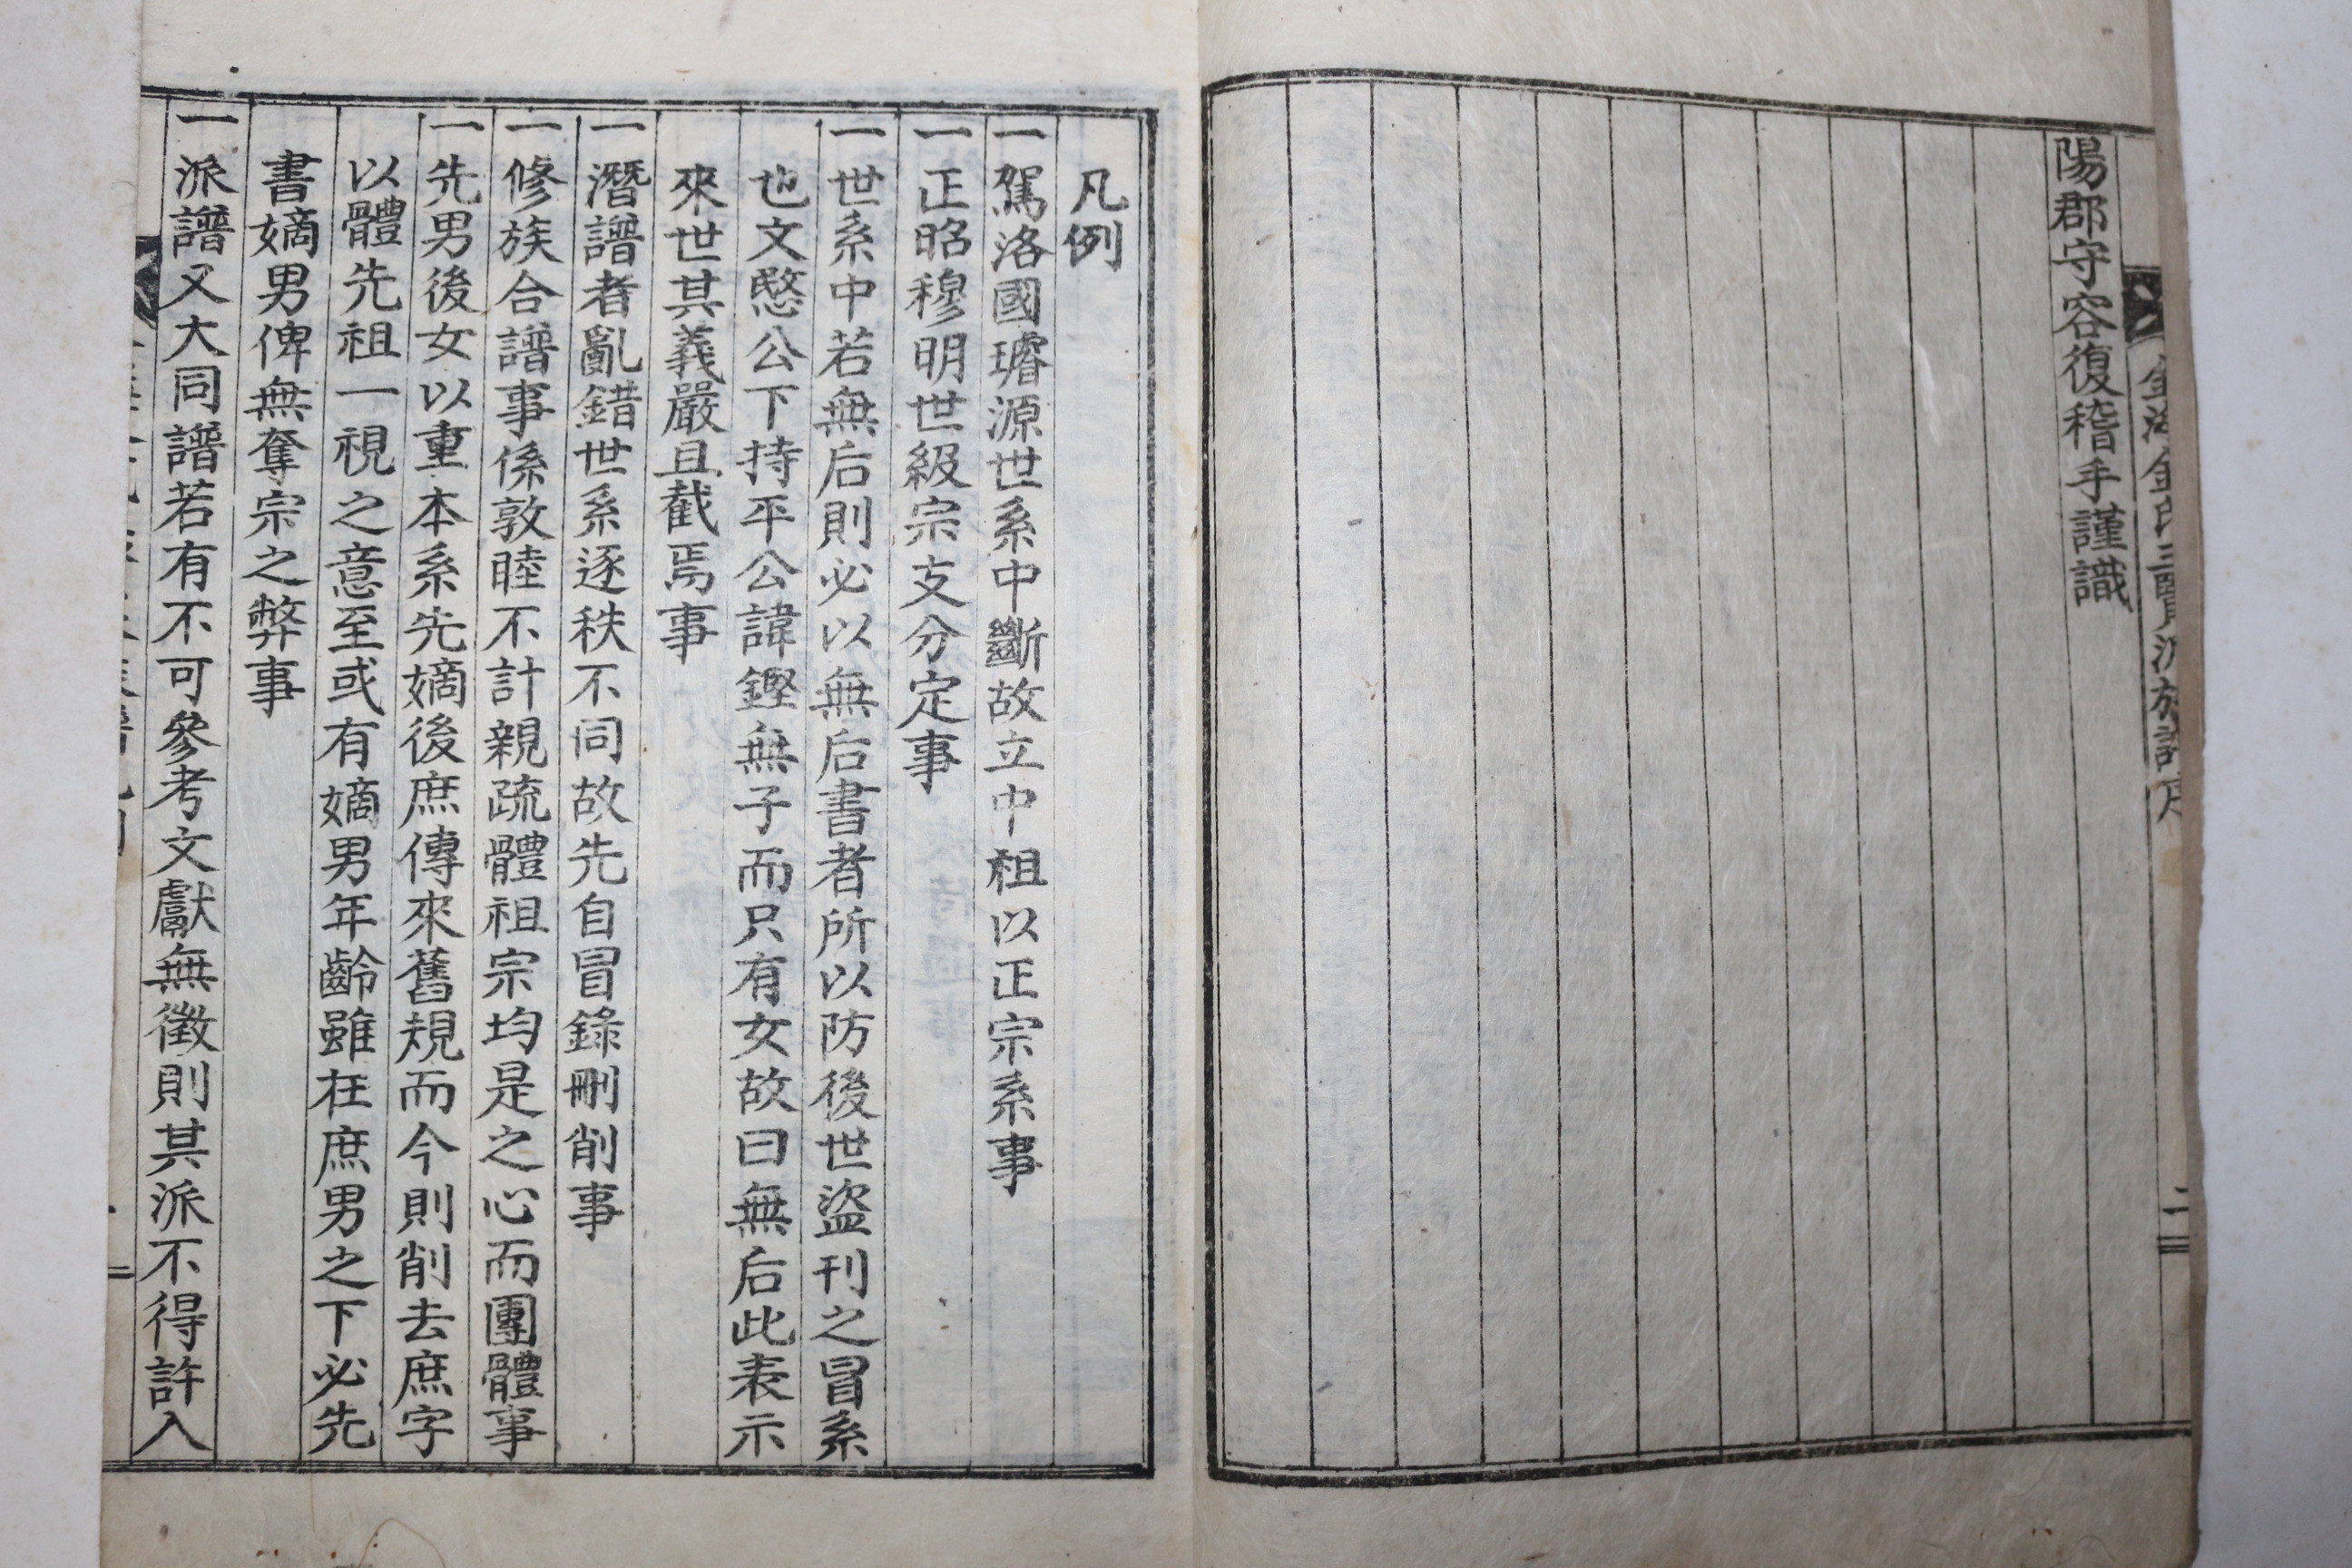 金海金氏三賢派族譜序
二
陽郡守容復稽手謹識
凡例
一駕洛國璿源世系中斷故立中祖以正宗系事
一正昭穆明世級宗支分定事
一世系中若無后則必以無后書者所以防後世盜刊之冒系
也文愍公下持平公諱鏗無子而只有女故曰無后此表示
來世其義嚴且截焉事
一潛譜者亂錯世系逐秩不同故先自冒錄刪削事
一修族合譜事係敦睦不計親疏體祖宗均是之心而團體事
一先男後女以重本系先嫡後庶傳來舊規而今則削去庶字
以體先祖一視之意至或有嫡男年齡雖在庶男之下必先
書嫡男俾無奪宗之弊事
一派譜又大同譜若有不可參考文獻無徵則其派不得許入